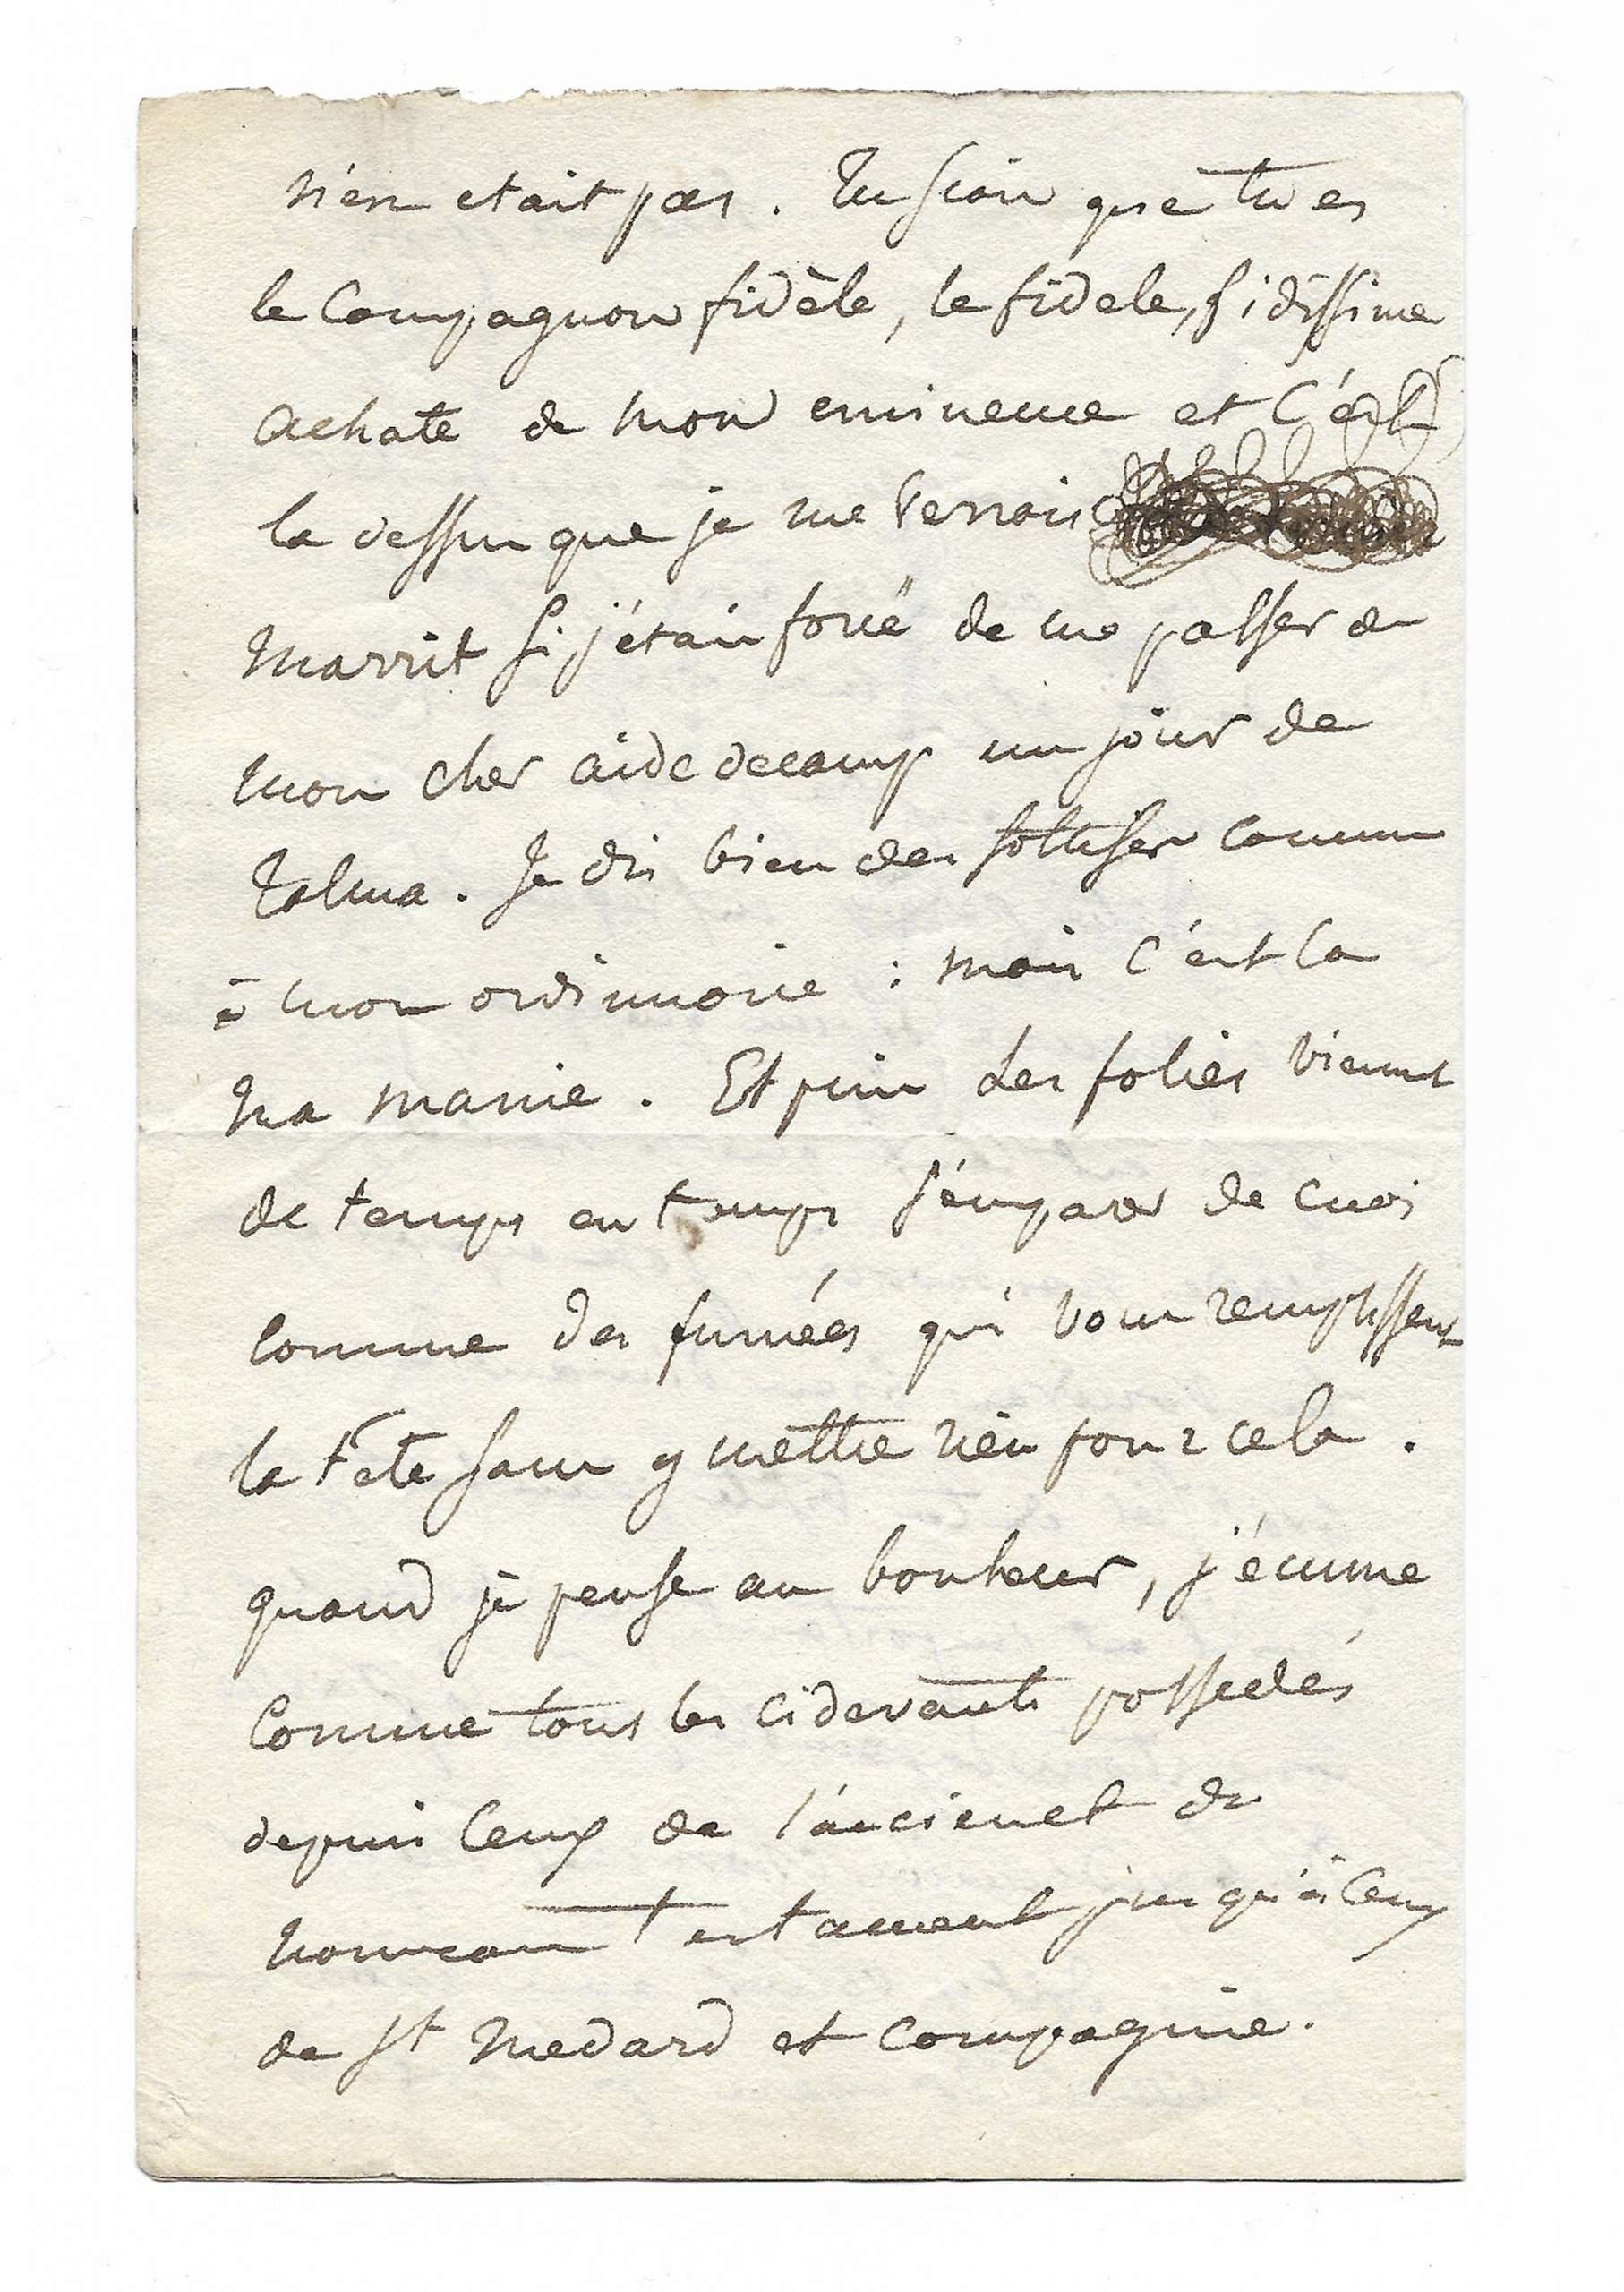 n'en etait pas. Tu scais que tu es
le Compagnon fidèle, le fidele, fidissime
achate de mon eminence et c'ést
la dessus que je me verrois
marrit si j'étais forcé de me passer de
mon cher aide decamp un jour de
Talma. Je dis bien des sottises comme
à mon ordinaire : mais c'est la
ma manie. Et puis des folies viennent
de temps en temps s'émparer de moi
comme des fumées qui vous remplissent
la tête sans y mettre rien pour cela.
quand je pense au bonheur, j'écume
Comme tous les cidevants possedés
depuis ceux de l'ancien et du
nouveau testament jusqu'à ceux
de St Medard et compagnie.